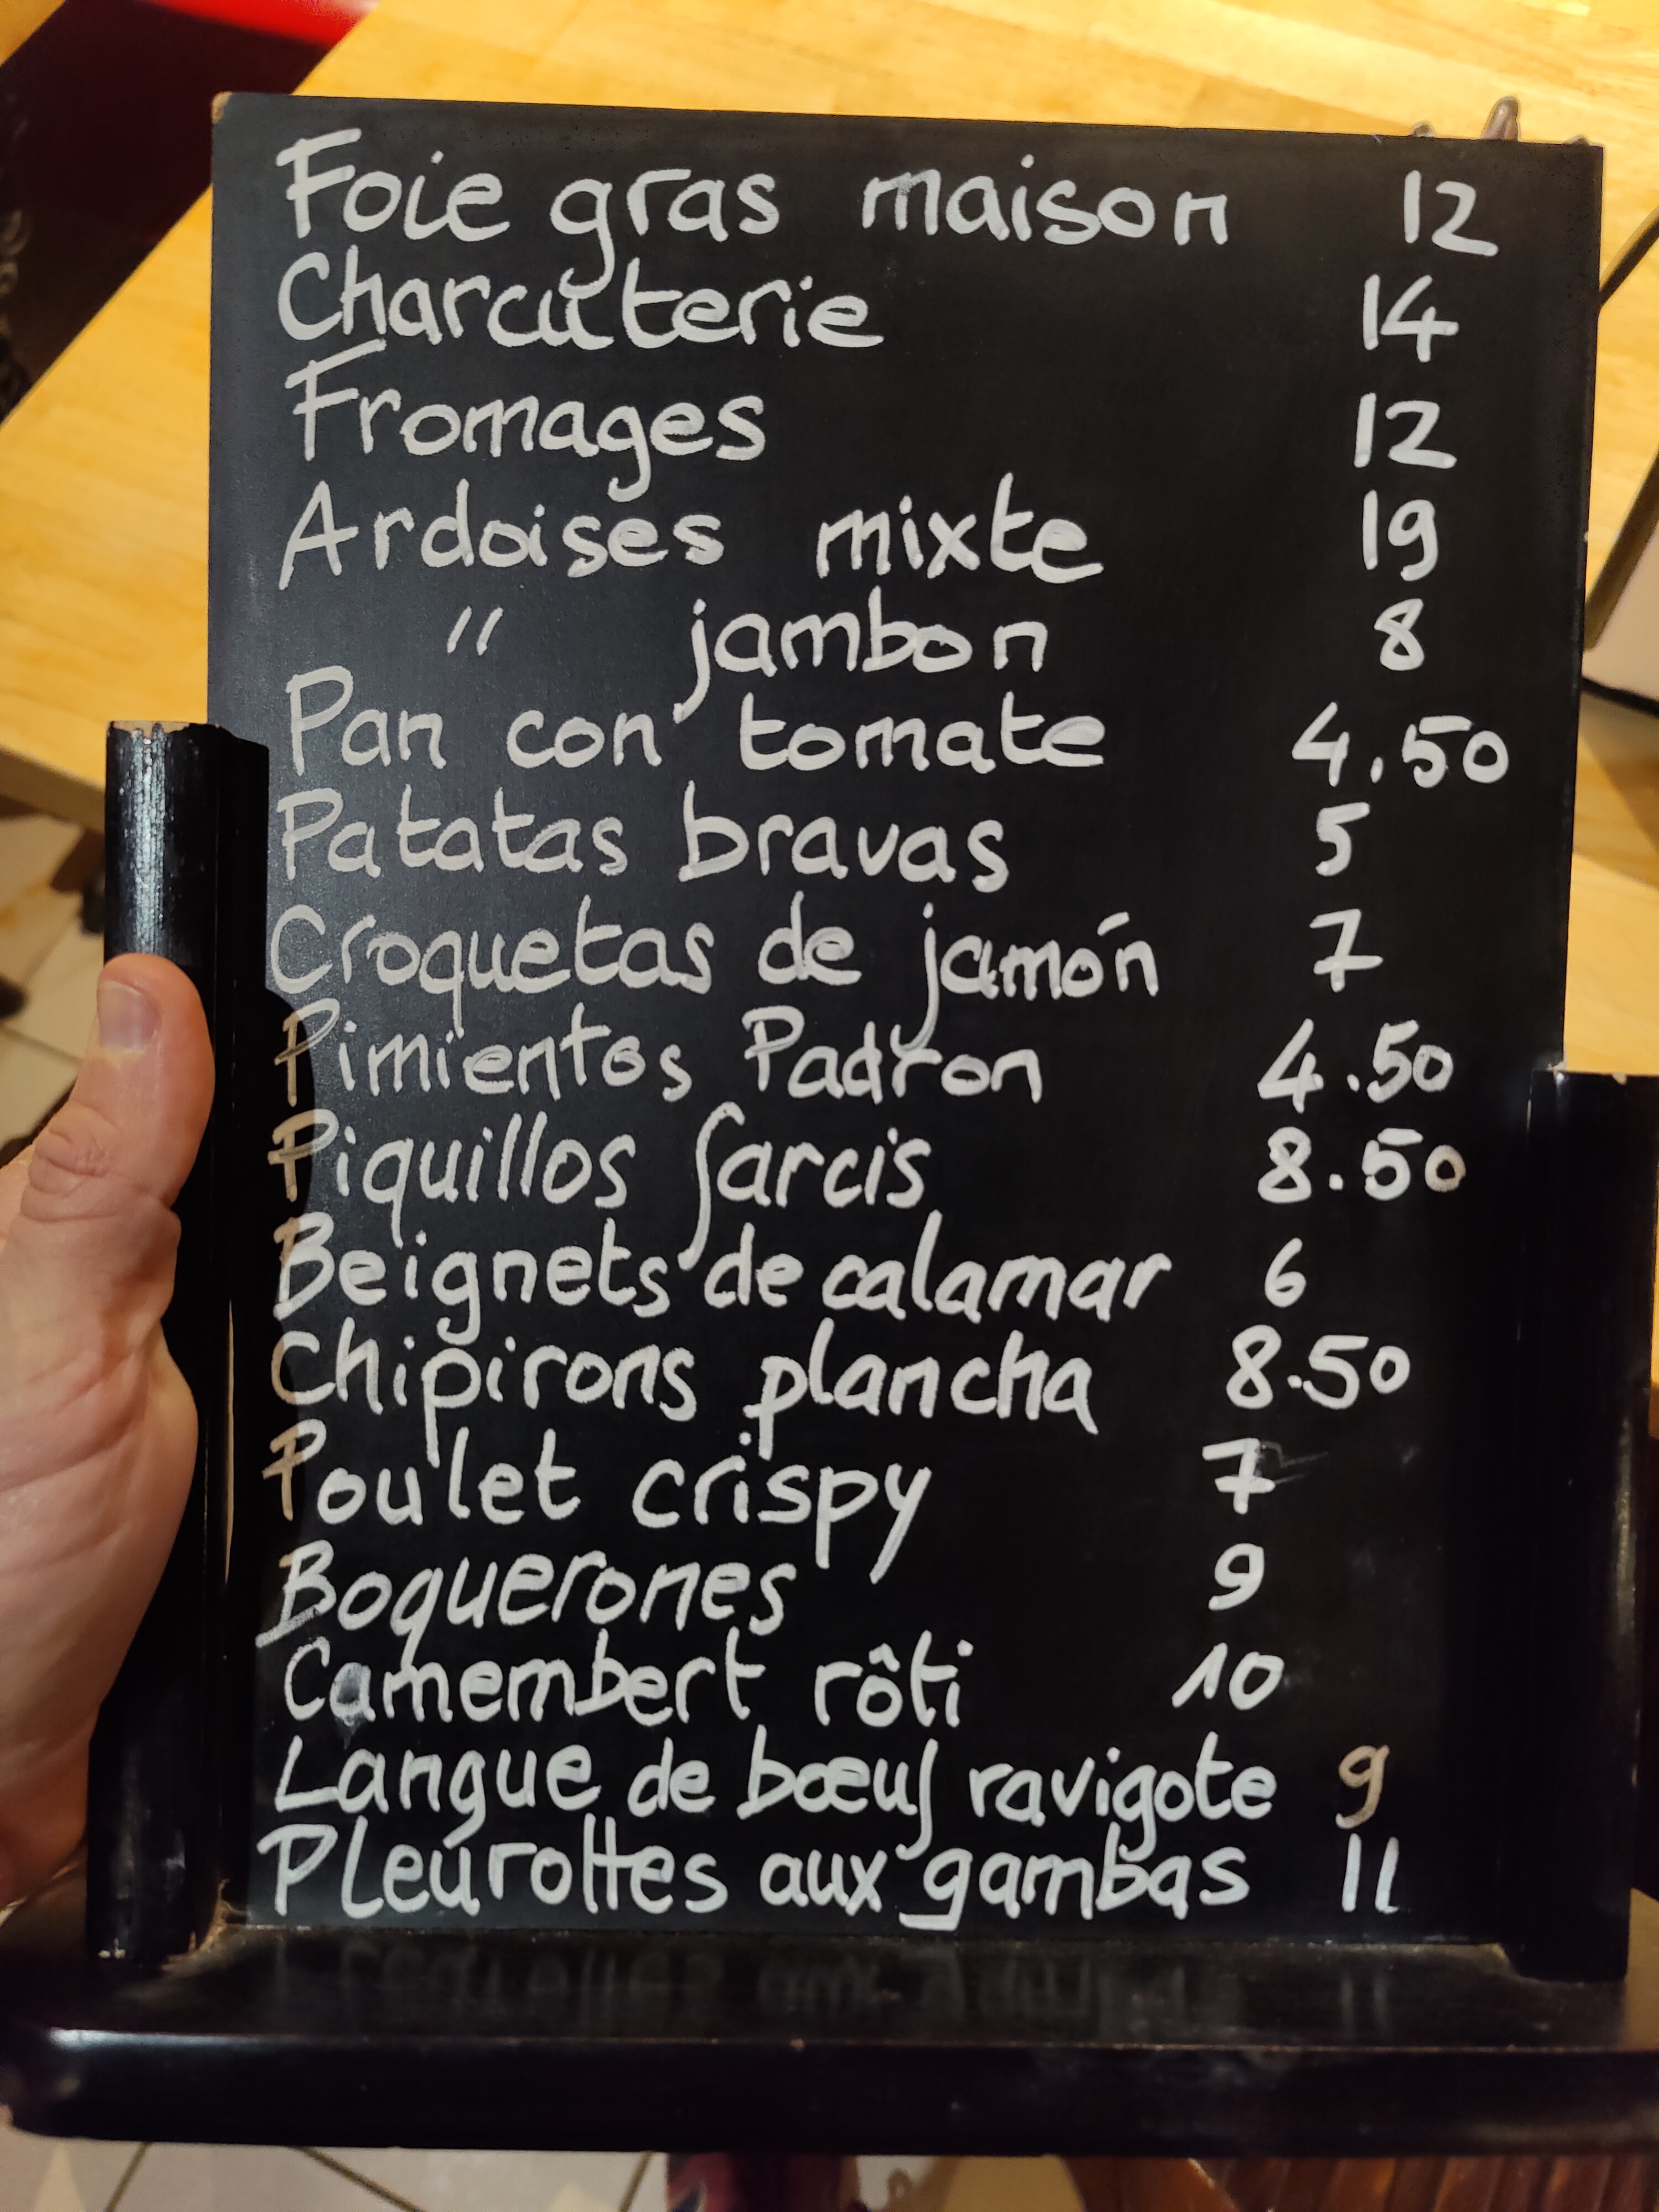 Foie gras maison 12
Charcuterie 14
Fromages 12
Ardoises mixte 19
" jambon 8
Pan con tomate 4.50
Patatas bravas 5
Croquetas de jamón 7
Pimientos Padron 4.50
Piquillos farcis 8.50
Beignets de calamar 6
Chipirons plancha 8.50
Poulet crispy 7
Boquerones 9
Camembert rôti 10
Langue de bœuf ravigote 9
Pleurottes aux gambas 11